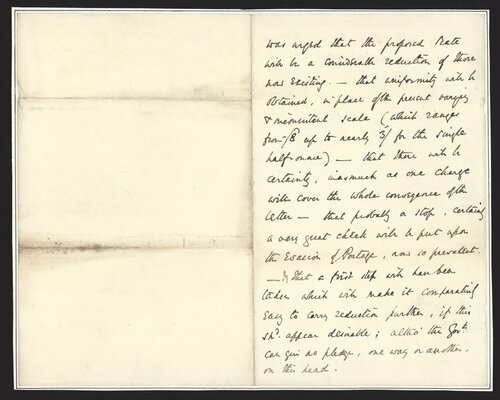 was urged that the proposed Rate
will be a considerable reduction of those
now Existing. — that uniformity will be
Obtained, in place of the present varying
& inconsistent scale (which ranges
from -/8 up to nearly 3/ for the single
half-ounce) — that there will be
certainty, inasmuch as one charge
will cover the whole conveyance of the
letter — that probably a stop, certainly
a very great check will be put upon
the Evasion of Postage, now so prevalent.
— & that a first step will have been
taken which will make it comparatively
Easy to carry reduction further, if this
shd. appear desirable; altho' the Govt.
can give no pledge, one way or another,
on this head.